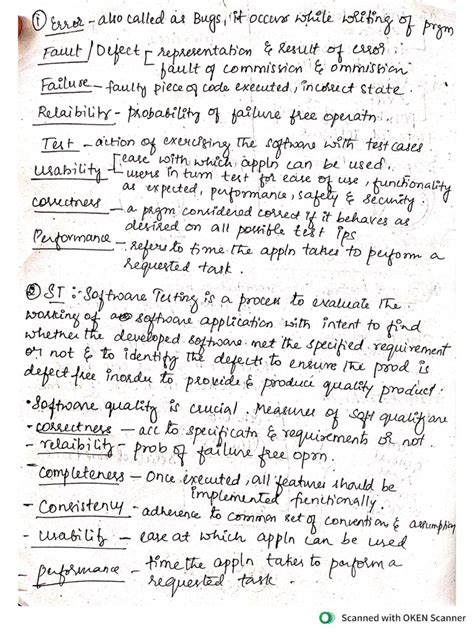 ① Error - also called as Bugs, it occurs while writing of prgm
Fault/Defect - representation & Result of error.
fault of commission & ommission
Failure - faulty piece of code executed, incorrect state.
Relaibility - probability of failure free operatn.
Test - action of exercising the software with test cases
Usability - ease with which appln can be used.
users in turn test for ease of use, functionality
as expected, performance, safety & security.
correctness - a prgm considered correct if it behaves as
desired on all possible test ips
Performance - refers to time the appln takes to perform a
requested task.
② ST :- Software Testing is a process to evaluate the
working of a software application with intent to find
whether the developed software met the specified requirement
or not & to identify the defects to ensure the prod is
defect free inorder to provide & produce quality product.
• Software quality is crucial. Measures of Soft quality are
- correctness - acc to specificatn & requirements or not.
- relaibility - prob of failure free oprn.
- Completeness - Once executed, all features should be
implemented fcnitionally.
- Consistency - adherence to common set of convention & assumption
- usability - ease at which appln can be used
- performance - time the appln takes to perform a
requested task.
Scanned with OKEN Scanner